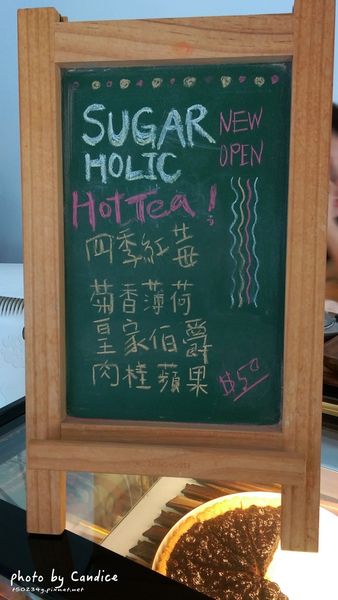 SUGAR
HOLIC
NEW
OPEN
Hot Tea!
四季紅莓
菊香薄荷
皇家伯爵
肉桂蘋果
$50
photo by Candice
t50234y.pixnet.net